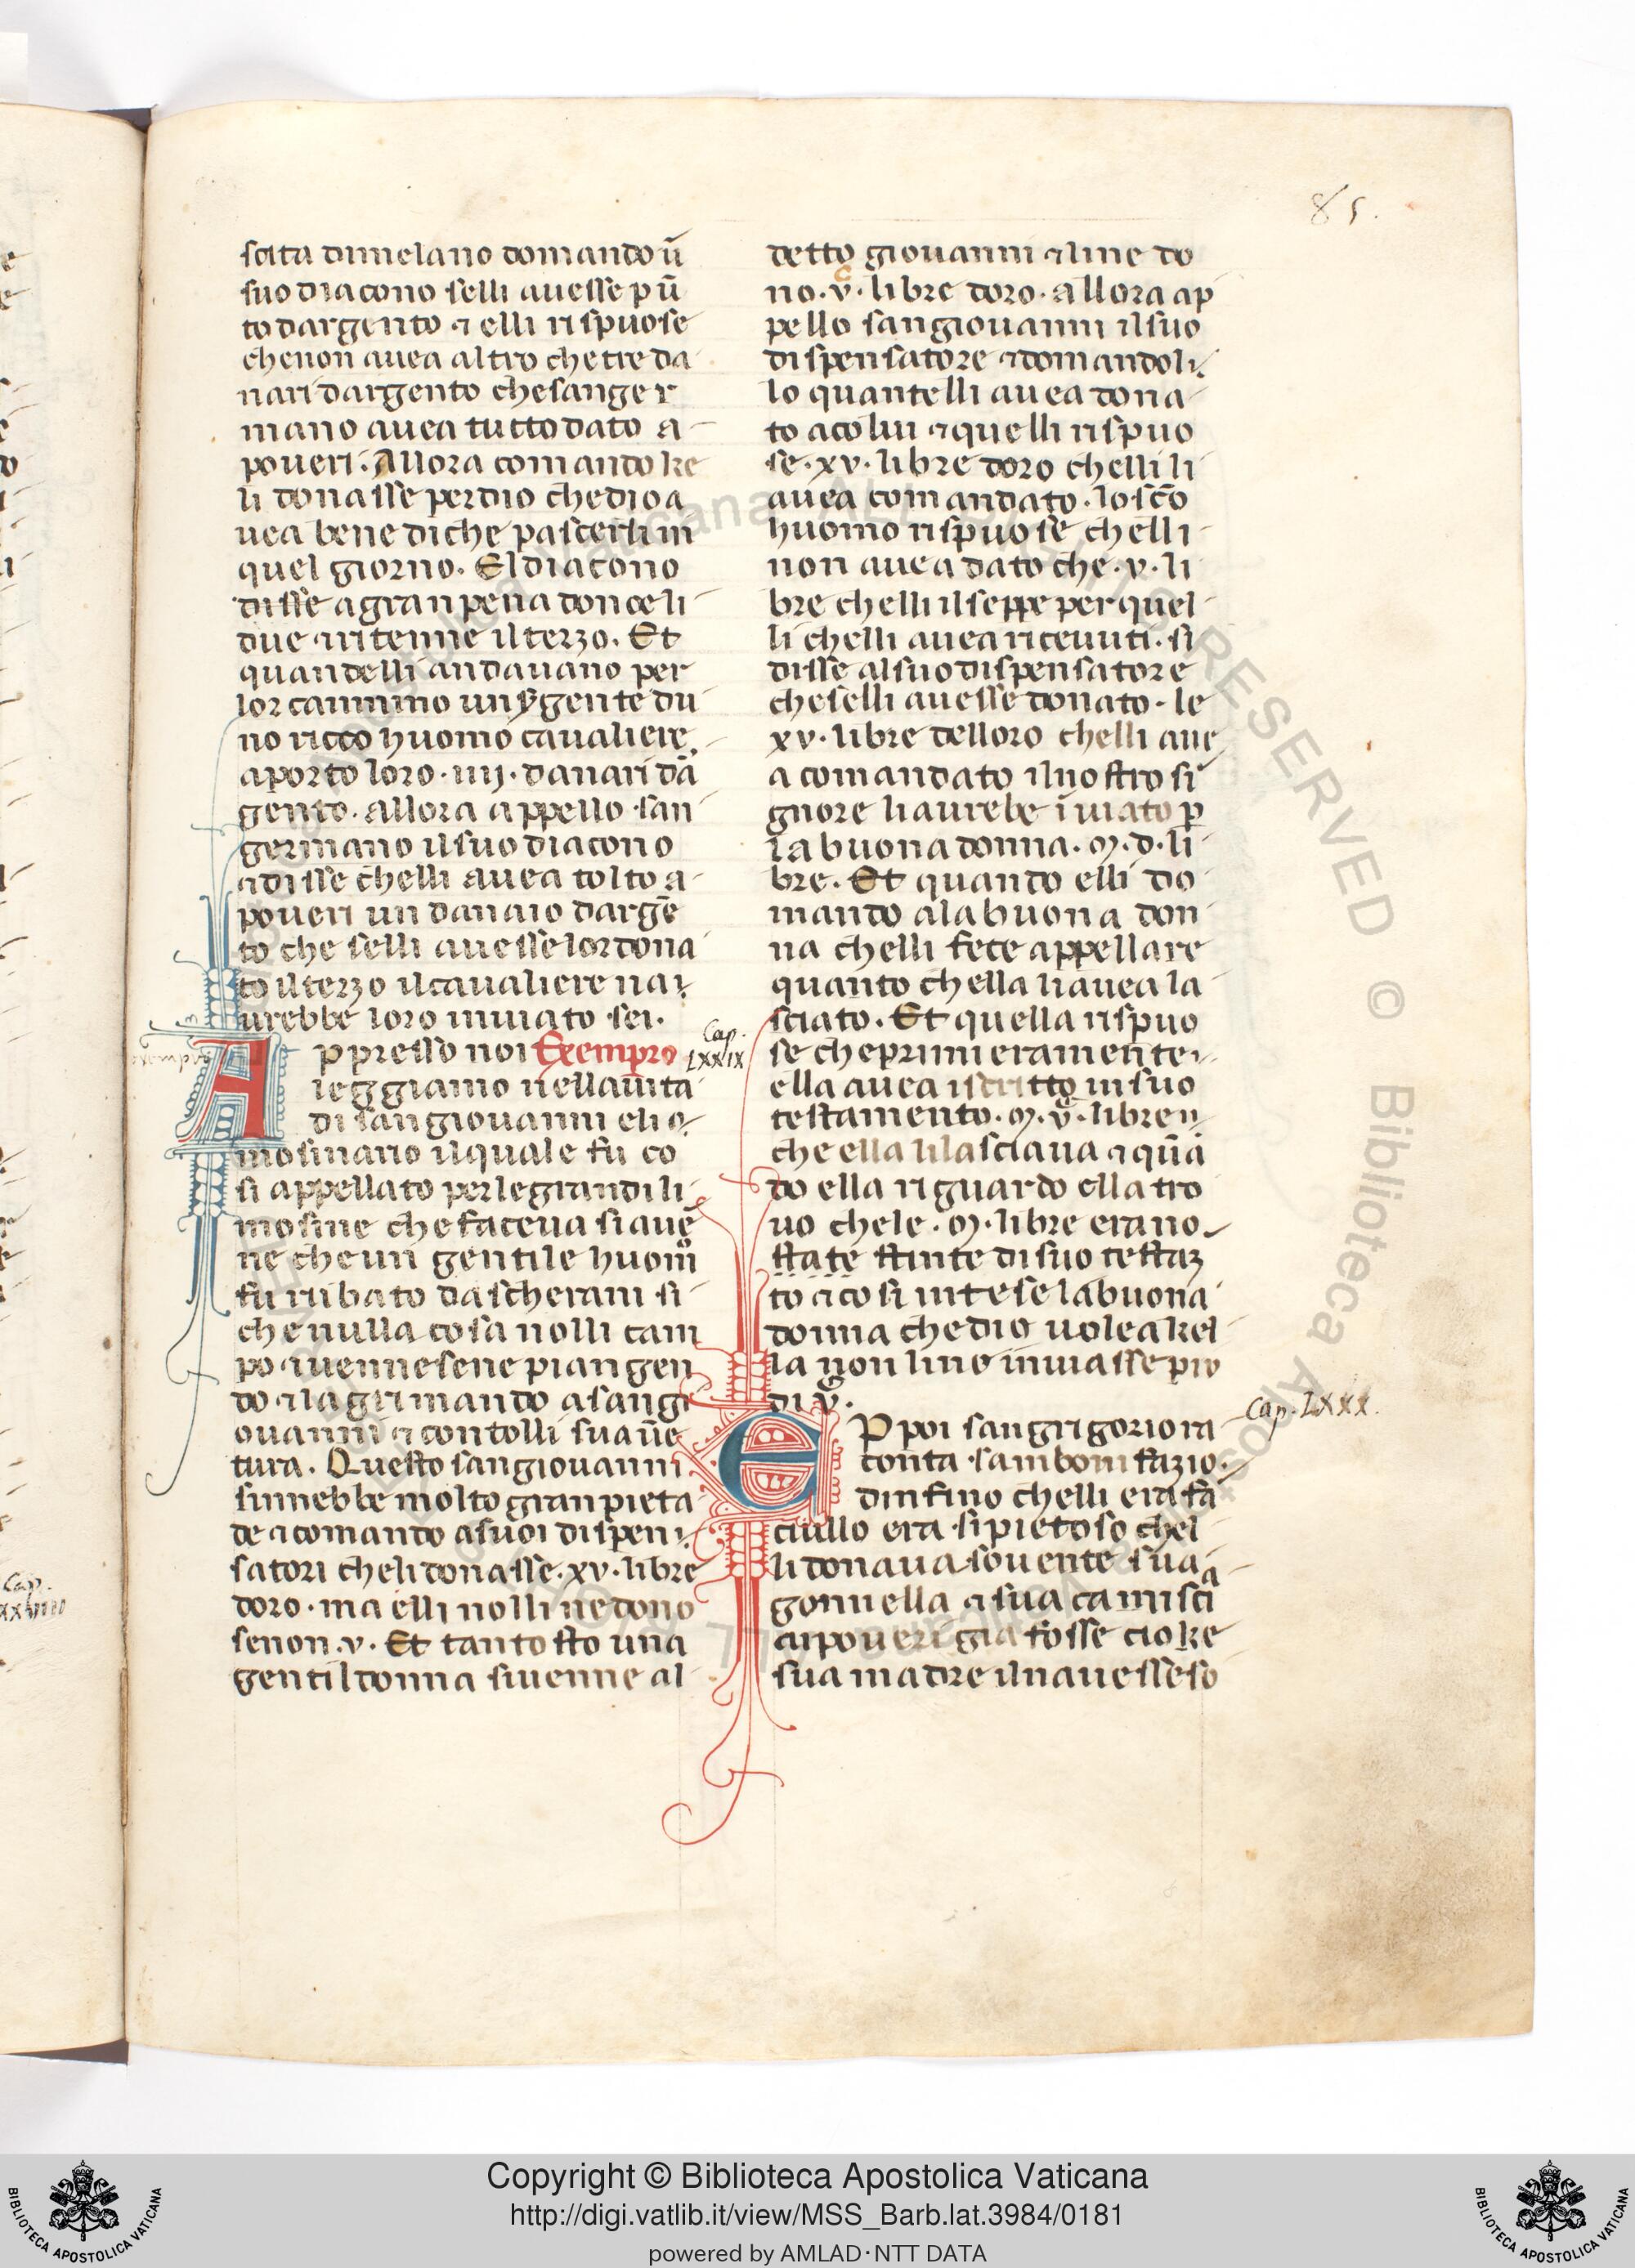 85.
scita dimelano domando ū
suo diacono selli auesse p ū
to dargento ⁊ elli rispuose
chenon auea altro chetre da
nari dargento chesanger
mano auea tutto dato a
poueri. Allora comando ke
li donasse perdio chedio a
uea bene diche pascerli in
quel giorno. El diacono
disse agran pena donoeli
due ⁊ ritenne il terzo. Et
quandelli andauano per
lor cammino
no ricco huomo caualiere
aporto loro .iiij. danari dā
gento. allora appello san
germano il suo diacono
⁊ disse chelli auea tolto a
poueri un danaio dargē
to che selli auesse lor dona
to il terzo il caualiere na
urebbe loro inuiato sei.
Appresso noi Exempro
Cap. LXXIX
leggiamo nellauita
di san giouanni elio
mosinario ilquale fu co
si appellato perlegrandi li
mosine che faceua si auē
ne che un gentile huom
fu rubato da scherani si
che nulla cosa nolli cam
po ⁊ uennesene piangen
do ⁊ lagrimando asangi
ouanni ⁊ contolli sua uē
tura. Questo san giouanni
sinnebbe molto gran pieta
de ⁊ comando asuoi dispen
satori cheli donasse .xv. libre
doro. ma elli nolli ne dono
senon .v. Et tantosto una
gentil donna siuenne al
detto giouanni ⁊ line do
no .v. libre doro. allora ap
pello sangiouanni il suo
dispensatore ⁊ domandoli
lo quantelli auea dona
to acolui ⁊ quelli rispuo
se .xv. libre doro chelli li
auea comandato. lo scō
huomo rispuose chelli
non auea dato che .v. li
bre chelli il seppe per quel
li chelli auea riceuuti. si
disse al suo dispensatore
che selli auesse donato le
xv. libre delloro chelli aue
a comandato il nostro si
gnore li aurebe ī uiato p
la buona donna .m.d. li
bre. Et quando elli do
mando ala buona don
na chelli fece appellare
quanto chella li auea la
sciato. Et quella rispuo
se che primieramente
ella auea iscritto in suo
testamento .m.v. libre
che ella li lasciaua ⁊ quā
do ella riguardo ella tro
uo chele .m. libre erano
state stinte di suo testaz
to ⁊ cosi intese la buona
donna che dio uolea kel
la non lino inuiasse piu
di v.
Cap. LXXX.
E Ppoi san grigorio ra
conta sambonifazio
dinfino chelli era fā
ciullo era si pietoso chel
li donaua souente sua
gonnella ⁊ sua camisci
a ipoueri gia fosse cio ke
sua madre il nauesse so
Copyright © Biblioteca Apostolica Vaticana
http://digi.vatlib.it/view/MSS_Barb.lat.3984/0181
powered by AMLAD·NTT DATA
BIBLIOTECA APOSTOLICA VATICANA
BIBLIOTECA APOSTOLICA VATICANA